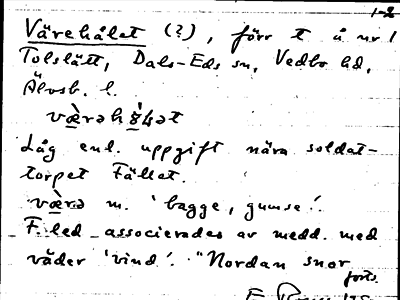 1-2
Värehålet (?), förr t å nr 1
Tolslätt, Dals-Eds sn, Vedbo hd,
Älvsb. l.
Låg enl. uppgift nära soldat-
torpet Fället.
værə m. 'bagge, gumse'.
F. led associerades av medd. med
väder 'vind'. "Nordan snor
forts.